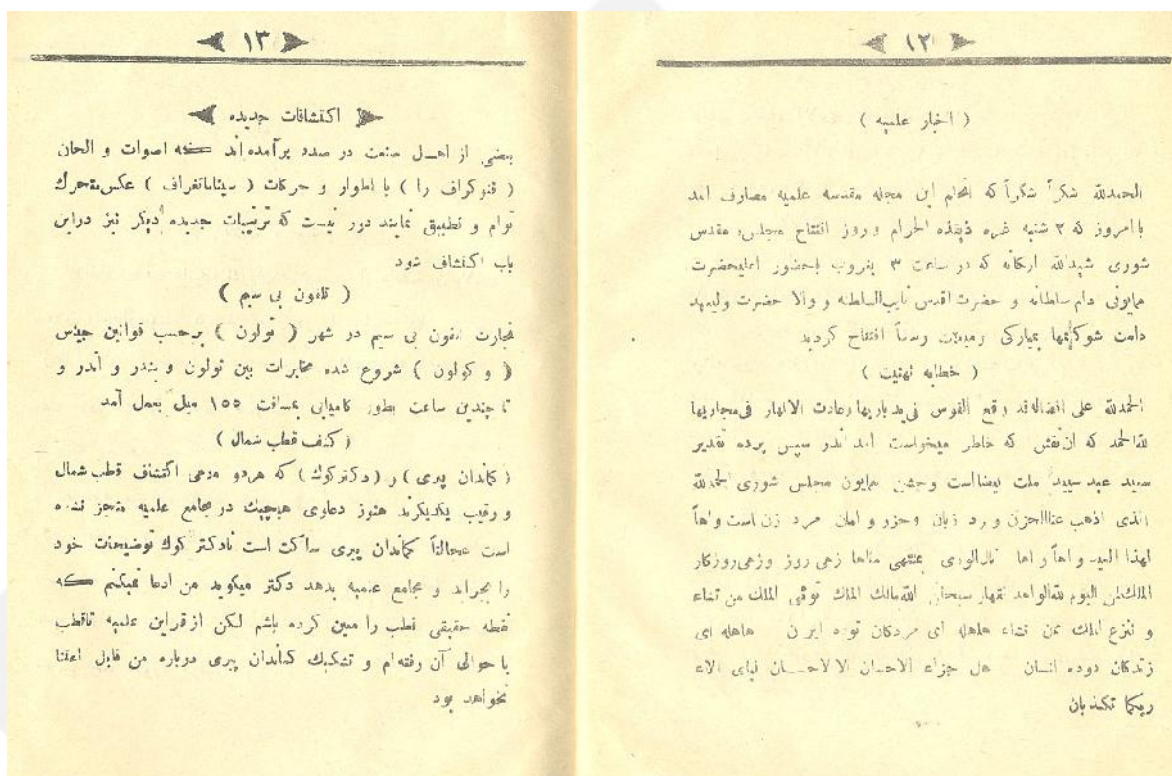 ۱۲
( اخبار علمیه )
الحمدلله شکراً شکراً که انجام این مجله مقدسه علمیه مصارف امد
باامروز که ۲ شنبه غره ذیقعده الحرام و روز افتتاح مجلس مقدس
شوری شیدالله ارکانه که در ساعت ۳ بغروب باحضور اعلیحضرت
همایونی دام سلطانه و حضرت اقدس نایب‌السلطنه و والا حضرت ولیعهد
دامت شوکتهما بمبارکی و میمنت رسماً افتتاح گردید
( خطابه تهنیت )
الحمدلله علی افضاله قد رقع القوس فی ید باریها وعادت الانهار فی مجاریها
لله‌الحمد که ان نقش که خاطر میخواست آمد اندر سپس پرده تقدیر
سعید عید سپید ملت بیضااست وجشن همایون مجلس شوری الحمدلله
الذی اذهب عناالحزن ورد زبان وحزر و امان مرد زن است واهاً
لهذا العید و اهاً واها زهی روز وزهی روزکار
الملک‌لمن الیوم لله‌الواحد القهار سبحان الله‌مالک الملک توئی الملک من تشاء
و تنزع الملک ممن تشاء هاهله ای مردکان توده ایران هاهله ای
زندکان دوده انسان هل جزاء الاحسان الا الاحسان فبای الاء
ربکما تکذبان
۱۳
اکتشافات جدیده
بعضی از اهل صنعت در صدد برآمده‌اند که اصوات و الحان
( فنوکراف را ) با اطوار و حرکات ( سیناماتغراف ) عکس‌متحرک
توام و تطبیق نمایند دور نیست که ترتیبات جدیده دیکر نیز دراین
باب اکتشاف شود
( تلفون بی سیم )
تجارت تلفون بی سیم در شهر ( تولون ) برحسب قوانین جینس
( و کولون ) شروع شده مخابرات بین تولون و بندر و آندر و
تا چندین ساعت بطور کامیابی بمسافت ۱۵۵ میل بعمل آمد
( کشف قطب شمال )
( کماندان پیری ) و ( دکترکوک ) که هردو مدعی اکتشاف قطب شمال
و رقیب یکدیکرند هنوز دعاوی هیچیک در مجامع علمیه منجز نشده
است عجالتاً کماندان پیری ساکت است تادکتر کوک توضیحات خود
را بجراید و مجامع علمیه بدهد دکتر میکوید من ادعا نمیکنم که
نقطه حقیقی قطب را معین کرده باشم لکن ازقراین علمیه تاقطب
یا حوالی آن رفته‌ام و تشکیک کماندان پیری درباره من قابل اعتنا
نخواهد بود